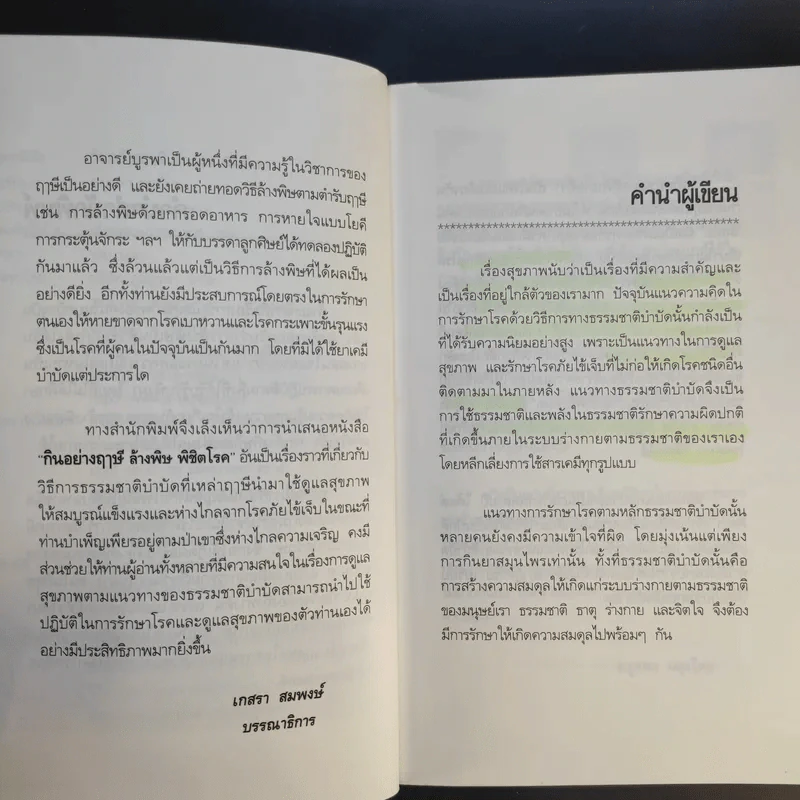 อาจารย์บูรพาเป็นผู้หนึ่งที่มีความรู้ในวิชาการของ
ฤาษีเป็นอย่างดี และยังเคยถ่ายทอดวิธีล้างพิษตามตำรับฤาษี
เช่น การล้างพิษด้วยการอดอาหาร การหายใจแบบโยคี
การกระตุ้นจักระ ฯลฯ ให้กับบรรดาลูกศิษย์ได้ทดลองปฏิบัติ
กันมาแล้ว ซึ่งล้วนแล้วแต่เป็นวิธีการล้างพิษที่ได้ผลเป็น
อย่างดียิ่ง อีกทั้งท่านยังมีประสบการณ์โดยตรงในการรักษา
ตนเองให้หายขาดจากโรคเบาหวานและโรคกระเพาะขั้นรุนแรง
ซึ่งเป็นโรคที่ผู้คนในปัจจุบันเป็นกันมาก โดยที่มิได้ใช้ยาเคมี
บำบัดแต่ประการใด
ทางสำนักพิมพ์จึงเล็งเห็นว่าการนำเสนอหนังสือ
"กินอย่างฤาษี ล้างพิษ พิชิตโรค" อันเป็นเรื่องราวที่เกี่ยวกับ
วิธีการธรรมชาติบำบัดที่เหล่าฤาษีนำมาใช้ดูแลสุขภาพ
ให้สมบูรณ์แข็งแรงและห่างไกลจากโรคภัยไข้เจ็บในขณะที่
ท่านบำเพ็ญเพียรอยู่ตามป่าเขาซึ่งห่างไกลความเจริญ คงมี
ส่วนช่วยให้ท่านผู้อ่านทั้งหลายที่มีความสนใจในเรื่องการดูแล
สุขภาพตามแนวทางของธรรมชาติบำบัดสามารถนำไปใช้
ปฏิบัติในการรักษาโรคและดูแลสุขภาพของตัวท่านเองได้
อย่างมีประสิทธิภาพมากยิ่งขึ้น
เกสรา สมพงษ์
บรรณาธิการ
คำนำผู้เขียน
**************************************************
เรื่องสุขภาพนับว่าเป็นเรื่องที่มีความสำคัญและ
เป็นเรื่องที่อยู่ใกล้ตัวของเรามาก ปัจจุบันแนวความคิดใน
การรักษาโรคด้วยวิธีการทางธรรมชาติบำบัดนั้นกำลังเป็น
ที่ได้รับความนิยมอย่างสูง เพราะเป็นแนวทางในการดูแล
สุขภาพ และรักษาโรคภัยไข้เจ็บที่ไม่ก่อให้เกิดโรคชนิดอื่น
ติดตามมาในภายหลัง แนวทางธรรมชาติบำบัดจึงเป็น
การใช้ธรรมชาติและพลังในธรรมชาติรักษาความผิดปกติ
ที่เกิดขึ้นภายในระบบร่างกายตามธรรมชาติของเราเอง
โดยหลีกเลี่ยงการใช้สารเคมีทุกรูปแบบ
แนวทางการรักษาโรคตามหลักธรรมชาติบำบัดนั้น
หลายคนยังคงมีความเข้าใจที่ผิด โดยมุ่งเน้นแต่เพียง
การกินยาสมุนไพรเท่านั้น ทั้งที่ธรรมชาติบำบัดนั้นคือ
การสร้างความสมดุลให้เกิดแก่ระบบร่างกายตามธรรมชาติ
ของมนุษย์เรา ธรรมชาติ ธาตุ ร่างกาย และจิตใจ จึงต้อง
มีการรักษาให้เกิดความสมดุลไปพร้อมๆ กัน